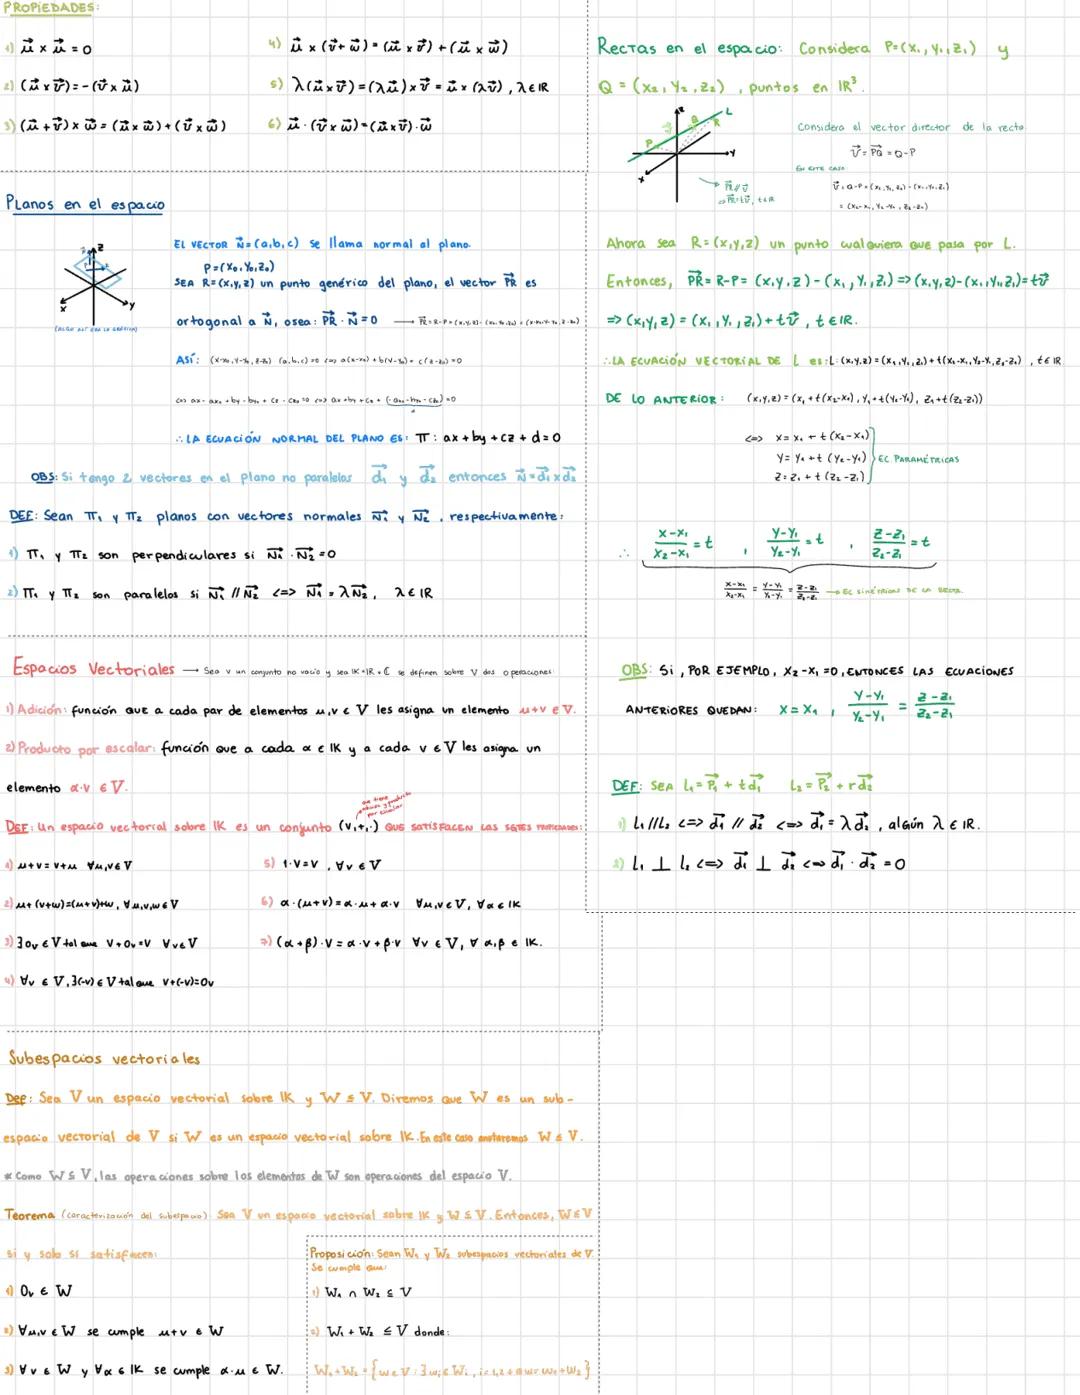 PROPIEDADES:
1) $\vec{u} \times \vec{u} = 0$
2) $(\vec{u} \times \vec{v}) = -(\vec{v} \times \vec{u})$
3) $(\vec{u} + \vec{v}) \times \vec{w} = (\vec{u} \times \vec{w}) + (\vec{v} \times \vec{w})$
4) $\vec{u} \times (\vec{v} + \vec{w}) = (\vec{u} \times \vec{v}) + (\vec{u} \times \vec{w})$
5) $\lambda(\vec{u} \times \vec{v}) = (\lambda\vec{u}) \times \vec{v} = \vec{u} \times (\lambda\vec{v}), \lambda \in \mathbb{R}$
6) $\vec{u} \cdot (\vec{v} \times \vec{w}) = (\vec{u} \times \vec{v}) \cdot \vec{w}$
Planos en el espacio
z
x
y
EL VECTOR $\vec{N} = (a,b,c)$ se llama normal al plano.
P=(x₀,y₀,z₀)
SEA R=(x,y,z) un punto genérico del plano, el vector $\vec{PR}$ es
ortogonal a $\vec{N}$, osea: $\vec{PR} \cdot \vec{N} = 0$ → $\vec{PR}$ = R-P = (x,y,z) - (x₀,y₀,z₀) = (x-x₀,y-y₀,z-z₀)
Así: (x-x₀,y-y₀,z-z₀) (a,b,c) = 0 <=> a(x-x₀) + b(y-y₀) + c(z-z₀) = 0
<=> ax - ax₀ + by - by₀ + cz - cz₀ = 0 <=> ax + by + cz + (-ax₀ - by₀ - cz₀) = 0
∴ LA ECUACIÓN NORMAL DEL PLANO ES: π: ax + by + cz + d = 0
OBS: Si tengo 2 vectores en el plano no paralelos $\vec{d_1}$ y $\vec{d_2}$ entonces $\vec{N} = \vec{d_1} \times \vec{d_2}$
DEF: Sean π₁ y π₂ planos con vectores normales $\vec{N_1}$ y $\vec{N_2}$, respectivamente:
1) π₁ y π₂ son perpendiculares si $\vec{N_1} \cdot \vec{N_2} = 0$
2) π₁ y π₂ son paralelos si $\vec{N_1} // \vec{N_2}$ <=> $\vec{N_1} = \lambda\vec{N_2}$, λ ∈ ℝ
Rectas en el espacio: Considera P=(x₁,y₁,z₁) y
Q = (x₂,y₂,z₂), puntos en ℝ³.
z
L
P
Q
R
y
x
$\vec{PR} // \vec{v}$
=> $\vec{PR} = t\vec{v}$, t∈ℝ
Considera el vector director de la recta
$\vec{v} = \vec{PQ} = Q-P$
En este caso
$\vec{v}$ = Q-P = (x₂,y₂,z₂) - (x₁,y₁,z₁)
= (x₂-x₁, y₂-y₁, z₂-z₁)
Ahora sea R=(x,y,z) un punto cualquiera que pasa por L.
Entonces, $\vec{PR}$ = R-P = (x,y,z) - (x₁,y₁,z₁) => (x,y,z)-(x₁,y₁,z₁) = t$\vec{v}$
=> (x,y,z) = (x₁,y₁,z₁) + t$\vec{v}$, t∈ℝ.
∴ LA ECUACIÓN VECTORIAL DE L es: L: (x,y,z) = (x₁,y₁,z₁) + t(x₂-x₁,y₂-y₁,z₂-z₁), t∈ℝ
DE LO ANTERIOR: (x,y,z) = (x₁ + t(x₂-x₁), y₁ + t(y₂-y₁), z₁ + t(z₂-z₁))
<=> x = x₁ + t(x₂-x₁)
y = y₁ + t(y₂-y₁) EC. PARAMÉTRICAS
z = z₁ + t(z₂-z₁)
∴ $\frac{x-x_1}{x_2-x_1} = t$, $\frac{y-y_1}{y_2-y_1} = t$, $\frac{z-z_1}{z_2-z_1} = t$
$\frac{x-x_1}{x_2-x_1} = \frac{y-y_1}{y_2-y_1} = \frac{z-z_1}{z_2-z_1}$ → EC SIMÉTRICAS DE LA RECTA.
OBS: Si, POR EJEMPLO, x₂-x₁=0, ENTONCES LAS ECUACIONES
ANTERIORES QUEDAN: x=x₁, $\frac{y-y_1}{y_2-y_1} = \frac{z-z_1}{z_2-z_1}$
DEF: SEA L₁ = $\vec{P_1}$ + t$\vec{d_1}$ L₂ = $\vec{P_2}$ + r$\vec{d_2}$
1) L₁//L₂ <=> $\vec{d_1} // \vec{d_2}$ <=> $\vec{d_1} = \lambda\vec{d_2}$, algún λ∈ℝ.
2) L₁ ⊥ L₂ <=> $\vec{d_1} ⊥ \vec{d_2}$ <=> $\vec{d_1} \cdot \vec{d_2} = 0$
Espacios Vectoriales → Sea V un conjunto no vacio y sea 𝕂=ℝ ó ℂ se definen sobre V dos operaciones:
1) Adición: función que a cada par de elementos u,v ∈ V les asigna un elemento u+v ∈ V.
2) Producto por escalar: función que a cada α ∈ 𝕂 y a cada v ∈ V les asigna un
elemento α·v ∈ V.
que tiene
adición y producto
por escalar
DEF: Un espacio vectorial sobre 𝕂 es un conjunto (V,+,·) QUE SATISFACEN LAS SGTES PROPIEDADES:
1) u+v = v+u ∀u,v∈V
2) u+(v+w)=(u+v)+w, ∀u,v,w∈V
3) ∃0ᵥ∈V tal que v+0ᵥ=v ∀v∈V
4) ∀v ∈ V, ∃(-v)∈V tal que v+(-v)=0ᵥ
5) 1·v=v, ∀v∈V
6) α·(u+v)=α·u+α·v ∀u,v∈V, ∀α∈𝕂
7) (α+β)·v = α·v+β·v ∀v ∈ V, ∀ α,β ∈ 𝕂.
Subespacios vectoriales
Def: Sea V un espacio vectorial sobre 𝕂 y W ⊆ V. Diremos que W es un sub-
espacio vectorial de V si W es un espacio vectorial sobre 𝕂. En este caso anotaremos W ≤ V.
* Como W ⊆ V, las operaciones sobre los elementos de W son operaciones del espacio V.
Teorema (caracterización del subespacio): Sea V un espacio vectorial sobre 𝕂 y W ⊆ V. Entonces, W≤V
si y solo si satisfacen:
1) 0ᵥ ∈ W
2) ∀u,v ∈ W se cumple u+v ∈ W
3) ∀v ∈ W y ∀α ∈ 𝕂 se cumple α·u ∈ W.
Proposición: Sean W₁ y W₂ subespacios vectoriales de V.
Se cumple que:
1) W₁ ∩ W₂ ≤ V
2) W₁ + W₂ ≤ V donde:
W₁+W₂ = {w∈V : ∃wᵢ∈Wᵢ, i=1,2 ∧ w=w₁+w₂}